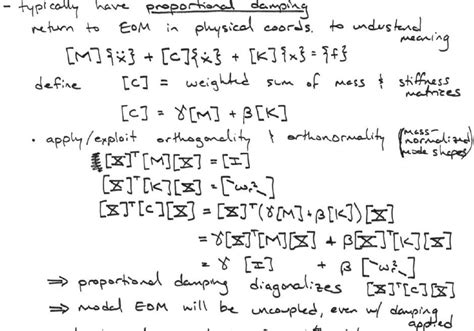 - typically have proportional damping
return to EOM in physical coords. to understand meaning
[M]{ẍ} + [C]{ẋ} + [K]{x} = {f}
define [C] = weighted sum of mass & stiffness matrices
[C] = γ[M] + β[K]
• apply/exploit orthogonality & orthonormality (mass-normalized mode shapes)
[X]ᵀ[M][X] = [I]
[X]ᵀ[K][X] = [`ω²ᵣ`]
[X]ᵀ[C][X] = [X]ᵀ(γ[M] + β[K])[X]
= γ[X]ᵀ[M][X] + β[X]ᵀ[K][X]
= γ [I] + β [`ω²ᵣ`]
⇒ proportional damping diagonalizes [X]ᵀ[C][X]
⇒ modal EOM will be uncoupled, even w/ damping applied